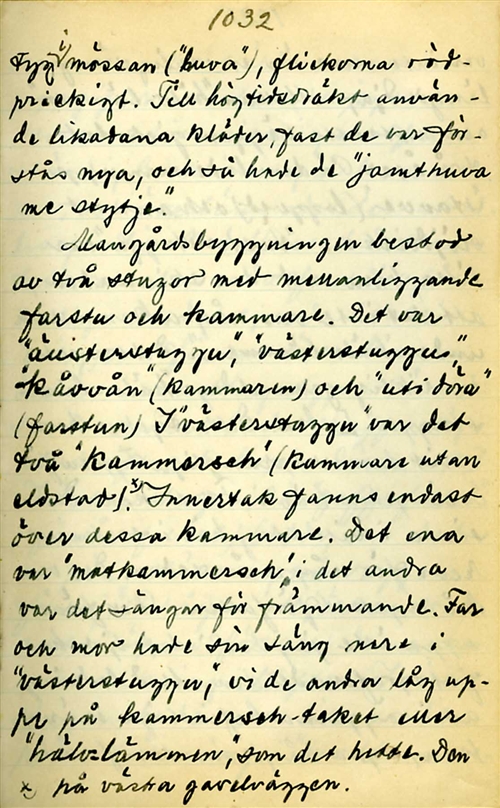 1032
tyg i mössan ("huva"), flickorna röd-
prickigt. Till högtidsdräkt använ-
de likadana kläder, fast de var för-
stås nya, och så hade de "jamthuva
me stytje."
Mangårdsbyggningen bestod
av två stugor med mellanliggande
farstu och kammare. Det var
"äusterstuggu", "västerstuggu",
"kåvvån" (kammaren) och "uti döra"
(farstun) I "västerstuggu" var det
två "kammersch" (kammare utan
eldstad).x) Innertak fanns endast
över dessa kammare. Det ena
var "matkammersch", i det andra
var det sängar för främmande. Far
och mor hade sin säng nere i
"västerstuggu", vi de andra låg up-
pe på kammersch-taket eller
"hälvlämmen", som det hette. Den
x) på västra gavelväggen.